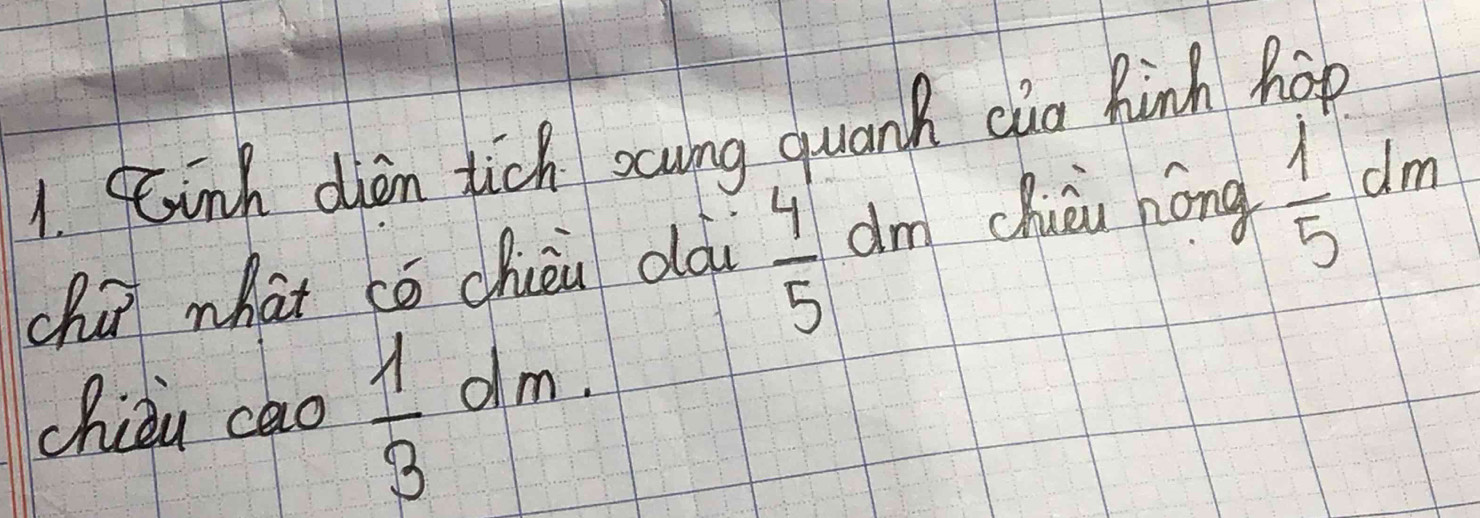 1. Tính diện tích xung quanh của hình hộp
chữ nhật có chiều dài 4/5 dm chiều rộng 1/5 dm
chiều cao 1/3 dm.